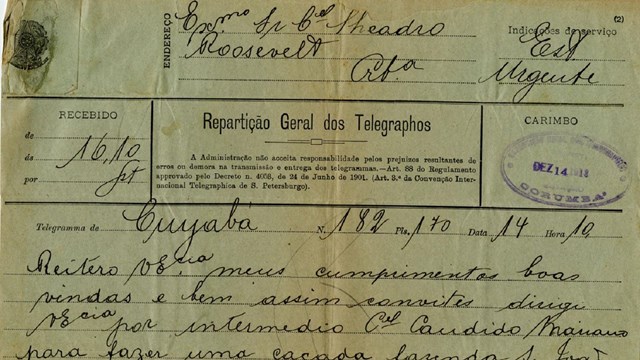 (2)
ENDEREÇO
Exmo Sr Cel Theadro
Roosevelt
Crbª
Indicações de serviço
Est
Urgente
RECEBIDO
de
ás 16,10
por
Repartição Geral dos Telegraphos
A Administração não acceita responsabilidade pelos prejuizos resultantes de
erros ou demora na transmissão e entrega dos telegrammas.—Art. 88 do Regulamento
approvado pelo Decreto n. 4053, de 24 de Junho de 1901. (Art. 3.º da Convenção Inter-
nacional Telegraphica de S. Petersburgo).
CARIMBO
DEZ 14 1913
CORUMBÁ
Telegramma de Cuyabá N. 182 Pls. 170 Data 14 Hora 10
Reitero VExcia meus cumprimentos boas
vindas e bem assim convites dirigi
VExcia por intermedio Cel Candido Mariano
para fazer uma caçada fazenda S. José